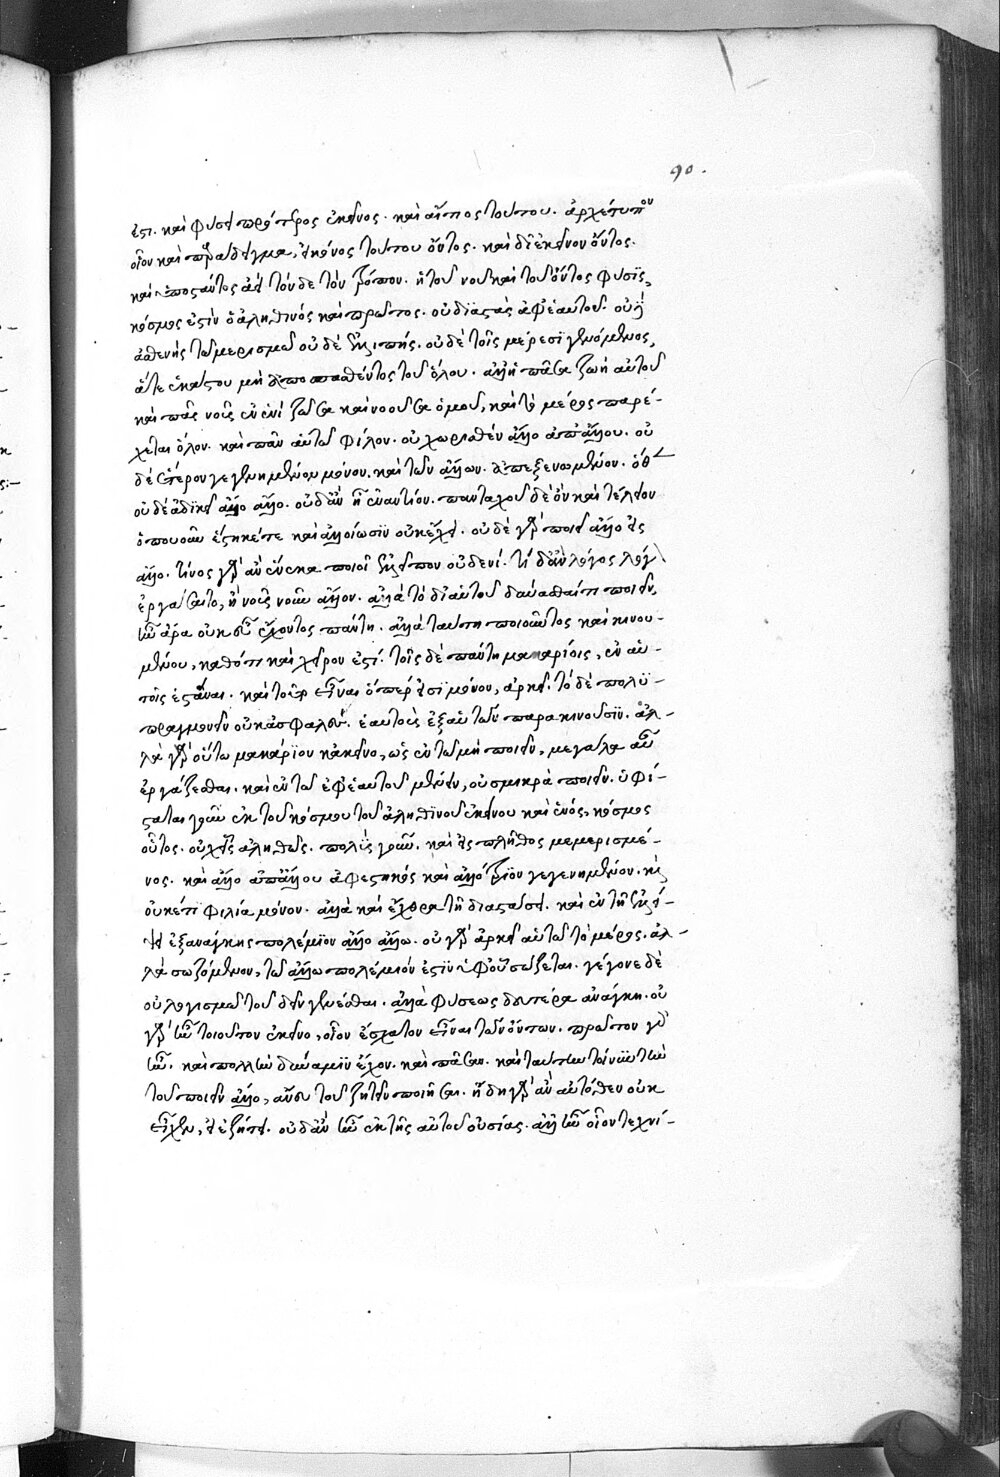 90.
ἐστι. καὶ φύσει πρότερος ἐκεῖνος. καὶ αἴτιος τούτου. ἀρχέτυπον
οἷον καὶ παράδειγμα, εἰκόνος τούτου ὄντος. καὶ δι' ἐκεῖνον ὄντος.
καὶ ὑποστάντος ἀεὶ τόνδε τὸν τρόπον. ἡ τοῦ νοῦ καὶ τοῦ ὄντος φύσϊς,
κόσμος ἐστὶν ὁ ἀληθινὸς καὶ πρῶτος. οὐ διαστὰς ἀφ' ἑαυτοῦ. οὐδὲ
ἀσθενὴς τῷ μερισμῷ οὐδὲ ἐλλιπὴς. οὐδὲ τοῖς μέρεσϊ γενόμενος,
ἅτε ἑκάστου μὴ ἀποσπασθέντος τοῦ ὅλου. ἀλλ' ἡ πᾶσα ζωὴ αὐτοῦ
καὶ πᾶς νοῦς ἐν ἑνὶ ζῶσα καὶ νοοῦσα ὁμοῦ, καὶ τὸ μέρος παρέ-
χεται ὅλον. καὶ πᾶν αὑτῷ φίλον. οὐ χωρισθὲν ἄλλο ἀπ' ἄλλου. οὐ
δὲ ἕτερον γεγενημένον μόνον. καὶ τῶν ἄλλων. ἀπεξενωμένον. ὅθεν
οὐδὲ ἀδικεῖ ἄλλο ἄλλο. οὐδ' ἂν ᾖ ἐναντίον. πανταχοῦ δὲ ὂν καὶ τέλειον
ὁπουοῦν ἕστηκέ τε καὶ ἀλλοίωσϊν οὐκ ἔχει. οὐδὲ γὰρ ποιεῖ ἄλλο εἰς
ἄλλο. τίνος γὰρ ἂν ἕνεκα ποιοῖ ἐλλεῖπον οὐδενί. τί δ' ἂν λόγος λόγον
ἐργάσαιτο, ἢ νοῦς νοῦν ἄλλον. ἀλλὰ τὸ δι' αὑτοῦ δύνασθαί τι ποιεῖν,
ἦν ἄρα οὐκ εὖ ἔχοντος πάντη. ἀλλὰ ταύτη ποιοῦντος καὶ κινου-
μένου, καθότι καὶ χεῖρόν ἐστι. τοῖς δὲ πάντη μακαρίοις, ἐν αὑ-
τοῖς ἑστάναι. καὶ τοῦτο εἶναι ὅπερ εἰσϊ μόνον, ἀρκεῖ. τὸ δὲ πολυ-
πραγμονεῖν οὐκ ἀσφαλὲς. ἑαυτοὺς ἐξ αὑτῶν παρακινοῦσϊν. ἀλ-
λὰ γὰρ οὕτω μακάριον κἀκεῖνο, ὡς ἐν τῷ μὴ ποιεῖν, μεγάλα αὖ
ἐργάζεσθαι. καὶ ἐν τῷ ἐφ' ἑαυτοῦ μένειν, οὐ σμικρὰ ποιεῖν. ὑφί-
σταται γοῦν ἐκ τοῦ κόσμου τοῦ ἀληθϊνοῦ ἐκείνου καὶ ἑνός, κόσμος
οὗτος. οὐχ εἷς ἀληθῶς. πολὺς γοῦν. καὶ εἰς πλῆθος μεμερισμέ-
νος. καὶ ἄλλο ἀπ' ἄλλου ἀφεστηκὸς καὶ ἀλλότρϊον γεγενημένον. καὶ
οὐκέτι φιλία μόνον. ἀλλὰ καὶ ἔχθρα τῇ διαστάσει. καὶ ἐν τῇ ἐλλεί-
ψει ἐξ ἀνάγκης πολέμϊον ἄλλο ἄλλω. οὐ γὰρ ἀρκεῖ αὑτῷ τὸ μέρος. ἀλ-
λὰ σωζόμενον, τῷ ἄλλω πολέμιόν ἐστϊν ὑφ' οὗ σώζεται. γέγονε δὲ
οὐ λογισμῷ τοῦ δεῖν γενέσθαι. ἀλλὰ φύσεως δευτέρας ἀνάγκη. οὐ
γὰρ ἦν τοιοῦτον ἐκεῖνο, οἷον ἔσχατον εἶναι τῶν ὄντων. πρῶτον γὰρ
ἦν. καὶ πολλὴν δύναμϊν ἔχον. καὶ πᾶσαν. καὶ ταύτην τοίνυν τὴν
τοῦ ποιεῖν ἄλλο, ἄνευ τοῦ ζητεῖν ποιῆσαι. ἤδη γὰρ ἂν αὐτόθεν οὐκ
εἶχεν, εἰ ἐζήτει. οὐδ' ἂν ἦν ἐκ τῆς αὐτοῦ οὐσίας. ἀλλ' ἦν οἷον τεχνί-